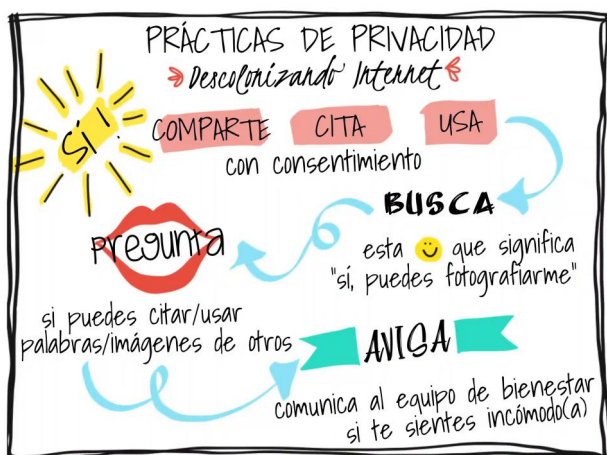 PRÁCTICAS DE PRIVACIDAD
Descolonizando Internet
SÍ!
COMPARTE CITA USA
con consentimiento
BUSCA
esta que significa
"sí, puedes fotografiarme"
pregunta
si puedes citar/usar
palabras/imágenes de otros
AVISA
comunica al equipo de bienestar
si te sientes incómodo(a)